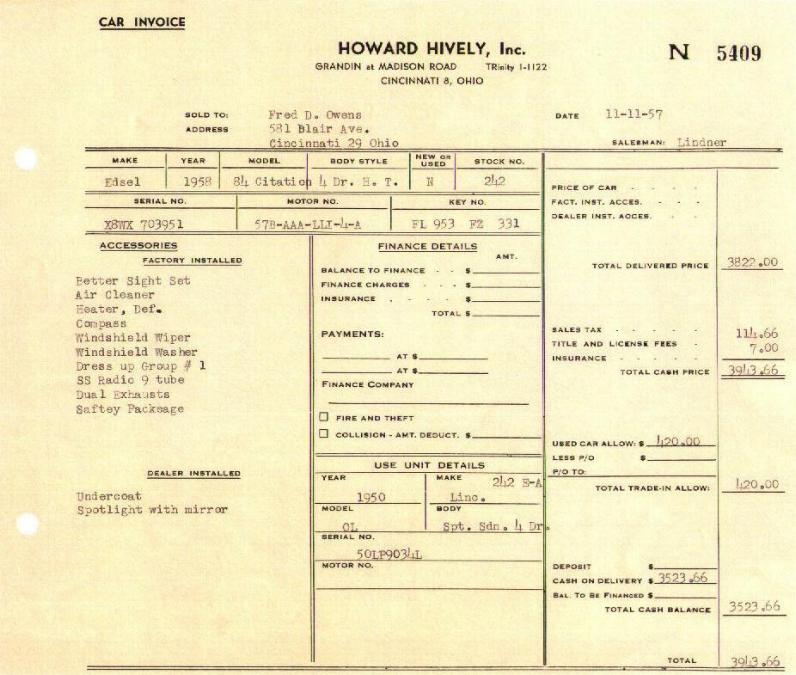 CAR INVOICE
HOWARD HIVELY, Inc.
GRANDIN at MADISON ROAD TRinity 1-1122
CINCINNATI 8, OHIO
N 5409
SOLD TO: Fred D. Owens
ADDRESS 581 Blair Ave.
Cincinnati 29 Ohio
DATE 11-11-57
SALESMAN: Lindner
MAKE YEAR MODEL BODY STYLE NEW OR USED STOCK NO.
Edsel 1958 84 Citation 4 Dr. H. T. N 242
SERIAL NO. MOTOR NO. KEY NO.
X8WX 703951 57B-AAA-LLI-4-A FL 953 FZ 331
ACCESSORIES
FACTORY INSTALLED
Better Sight Set
Air Cleaner
Heater, Def.
Compass
Windshield Wiper
Windshield Washer
Dress up Group # 1
SS Radio 9 tube
Dual Exhausts
Saftey Packeage
DEALER INSTALLED
Undercoat
Spotlight with mirror
FINANCE DETAILS
AMT.
BALANCE TO FINANCE - - $
FINANCE CHARGES - - - $
INSURANCE - - - - $
TOTAL $
PAYMENTS:
AT $
AT $
FINANCE COMPANY
FIRE AND THEFT
COLLISION - AMT. DEDUCT. $
USE UNIT DETAILS
YEAR MAKE 242 E-A
1950 Linc.
MODEL BODY
OL Spt. Sdn. 4 Dr.
SERIAL NO.
50LP9034L
MOTOR NO.
PRICE OF CAR - - - -
FACT. INST. ACCES. - - -
DEALER INST. ACCES. - -
TOTAL DELIVERED PRICE 3822.00
SALES TAX - - - - - 114.66
TITLE AND LICENSE FEES - 7.00
INSURANCE - - - - -
TOTAL CASH PRICE 3943.66
USED CAR ALLOW: $ 420.00
LESS P/O $
P/O TO:
TOTAL TRADE-IN ALLOW: 420.00
DEPOSIT $
CASH ON DELIVERY $ 3523.66
BAL. TO BE FINANCED $
TOTAL CASH BALANCE 3523.66
TOTAL 3943.66